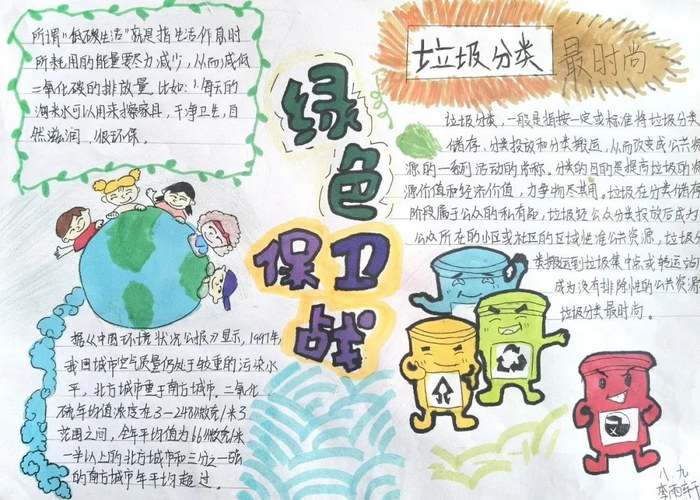 所谓“低碳生活”就是指生活作息时
所耗用的能量要尽力减少，从而减低
二氧化碳的排放量。比如：1.每天的
淘米水可以用来擦家具，干净卫生，自
然滋润，很环保。
绿色
保卫
战
垃圾分类 最时尚
垃圾分类，一般是指按一定或标准将垃圾分类
储存、分类投放和分类搬运，从而改变成公共资
源的一系列活动的总称。分类的目的是提高垃圾的资
源价值和经济价值，力争物尽其用。垃圾在分类储存
阶段属于公众的私有品，垃圾经公众分类投放后成为
公众所在的小区或社区的区域性准公共资源，垃圾分
类搬运到垃圾集中点或转运站
成为没有排除性的公共资源
垃圾分类最时尚。
据从中国环境状况公报》显示，1997年，
我国城市空气质量仍处于较重的污染水
平，北方城市重于南方城市。二氧化
硫年均值浓度在3-248微克/米3
范围之间，全年平均值为66微克/米
一半以上的北方城市和三分之一强
的南方城市年平均超过。
八.九
李雨